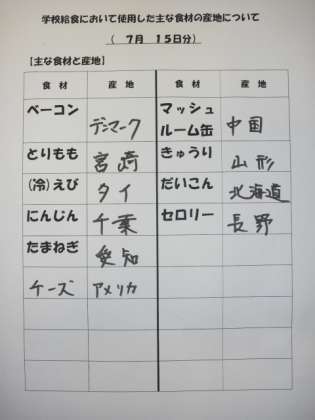 学校給食において使用した主な食材の産地について
( 7月 15日分)
【主な食材と産地】
食材 産地 食材 産地
ベーコン デンマーク マッシュルーム缶 中国
とりもも 宮崎 きゅうり 山形
(冷)えび タイ だいこん 北海道
にんじん 千葉 セロリー 長野
たまねぎ 愛知
チーズ アメリカ